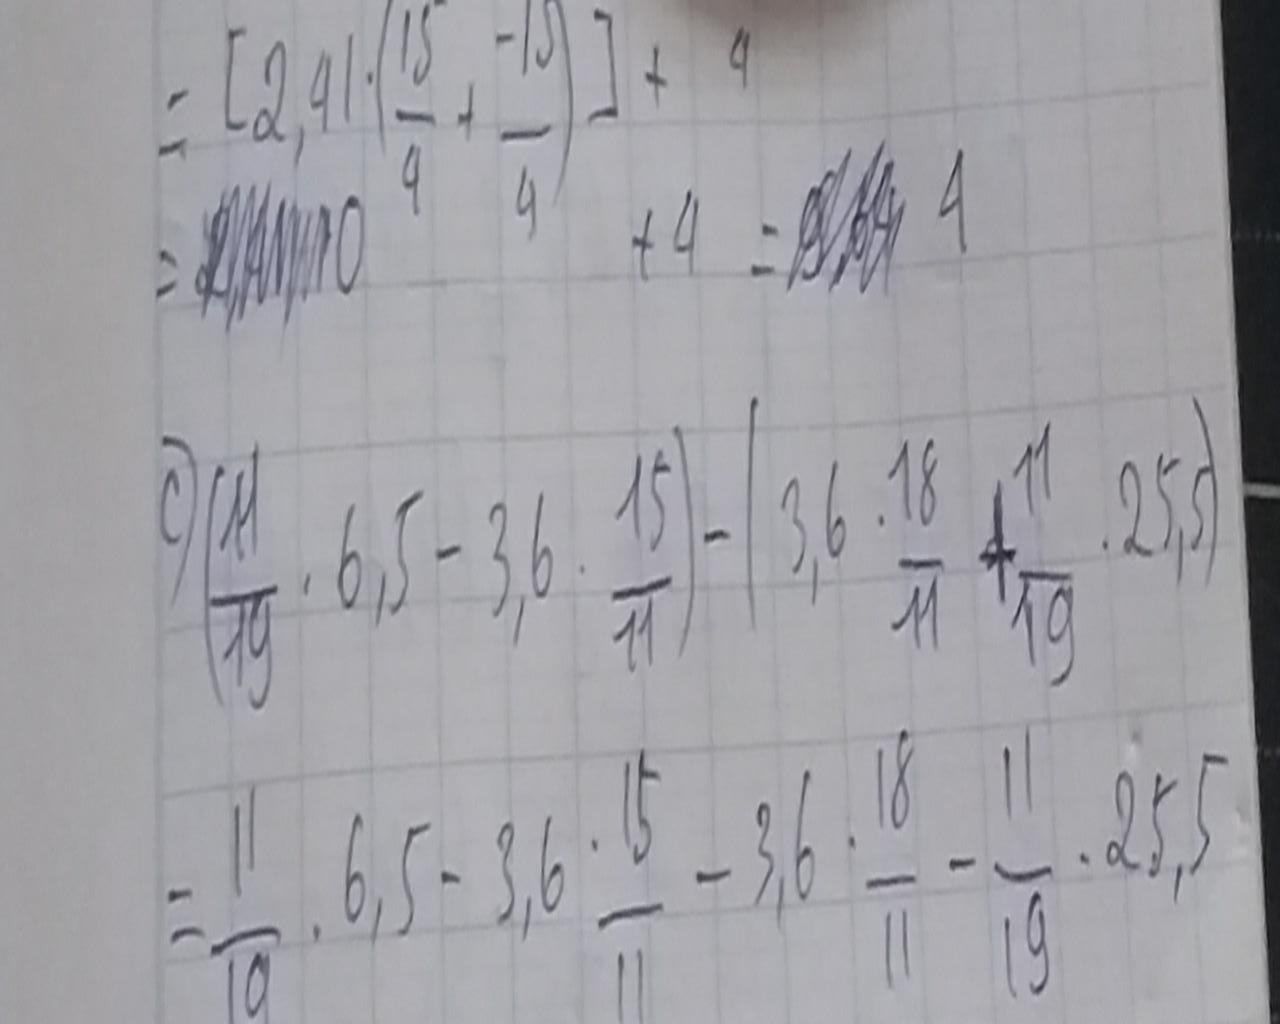 = [2,41·(15/4 + -15/4)] + 4
= 0 + 4 = 4
c) (11/19 . 6,5 - 3,6 . 15/11) - (3,6 . 18/11 + 11/19 . 25,5)
= 11/19 . 6,5 - 3,6 . 15/11 - 3,6 . 18/11 - 11/19 . 25,5